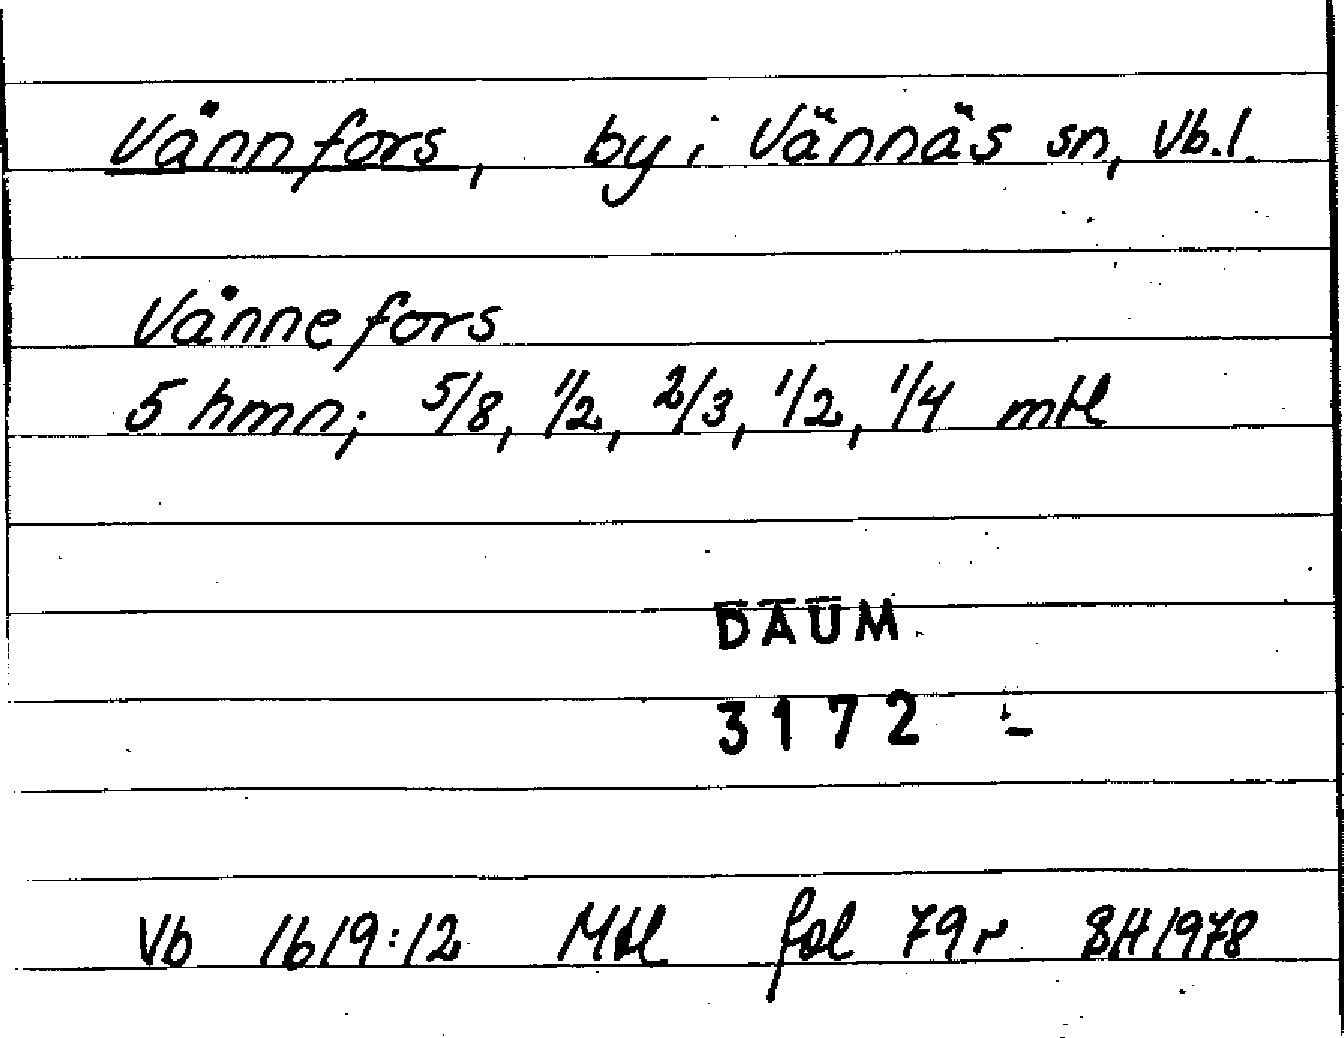 Vännfors, by i Vännäs sn, Vb.l.
Vännefors
5 hmn; 5/8, 1/2, 2/3, 1/2, 1/4 mtl
DAUM
3172 -
Vb 1619:12 Mtl fol 79r BH 1978